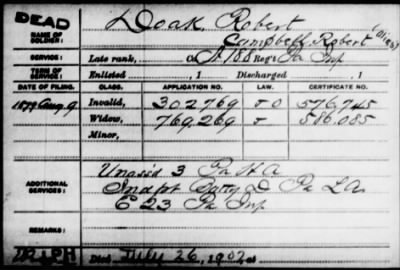 DEAD
NAME OF SOLDIER: Doak, Robert
Campbell, Robert (alias)
SERVICE: Late rank, Co. A, 188 Reg't Pa Inf
TERM OF SERVICE: Enlisted , 1 Discharged , 1
DATE OF FILING. CLASS. APPLICATION NO. LAW. CERTIFICATE NO.
1879 Aug. 9 Invalid, 302.769 576.745
Widow, 769.269 586.085
Minor,
ADDITIONAL SERVICES: Unas'd 3 Pa H A
Indpt Batty D Pa L A
E 23 Pa Inf
REMARKS:
Died July 26, 1902, at